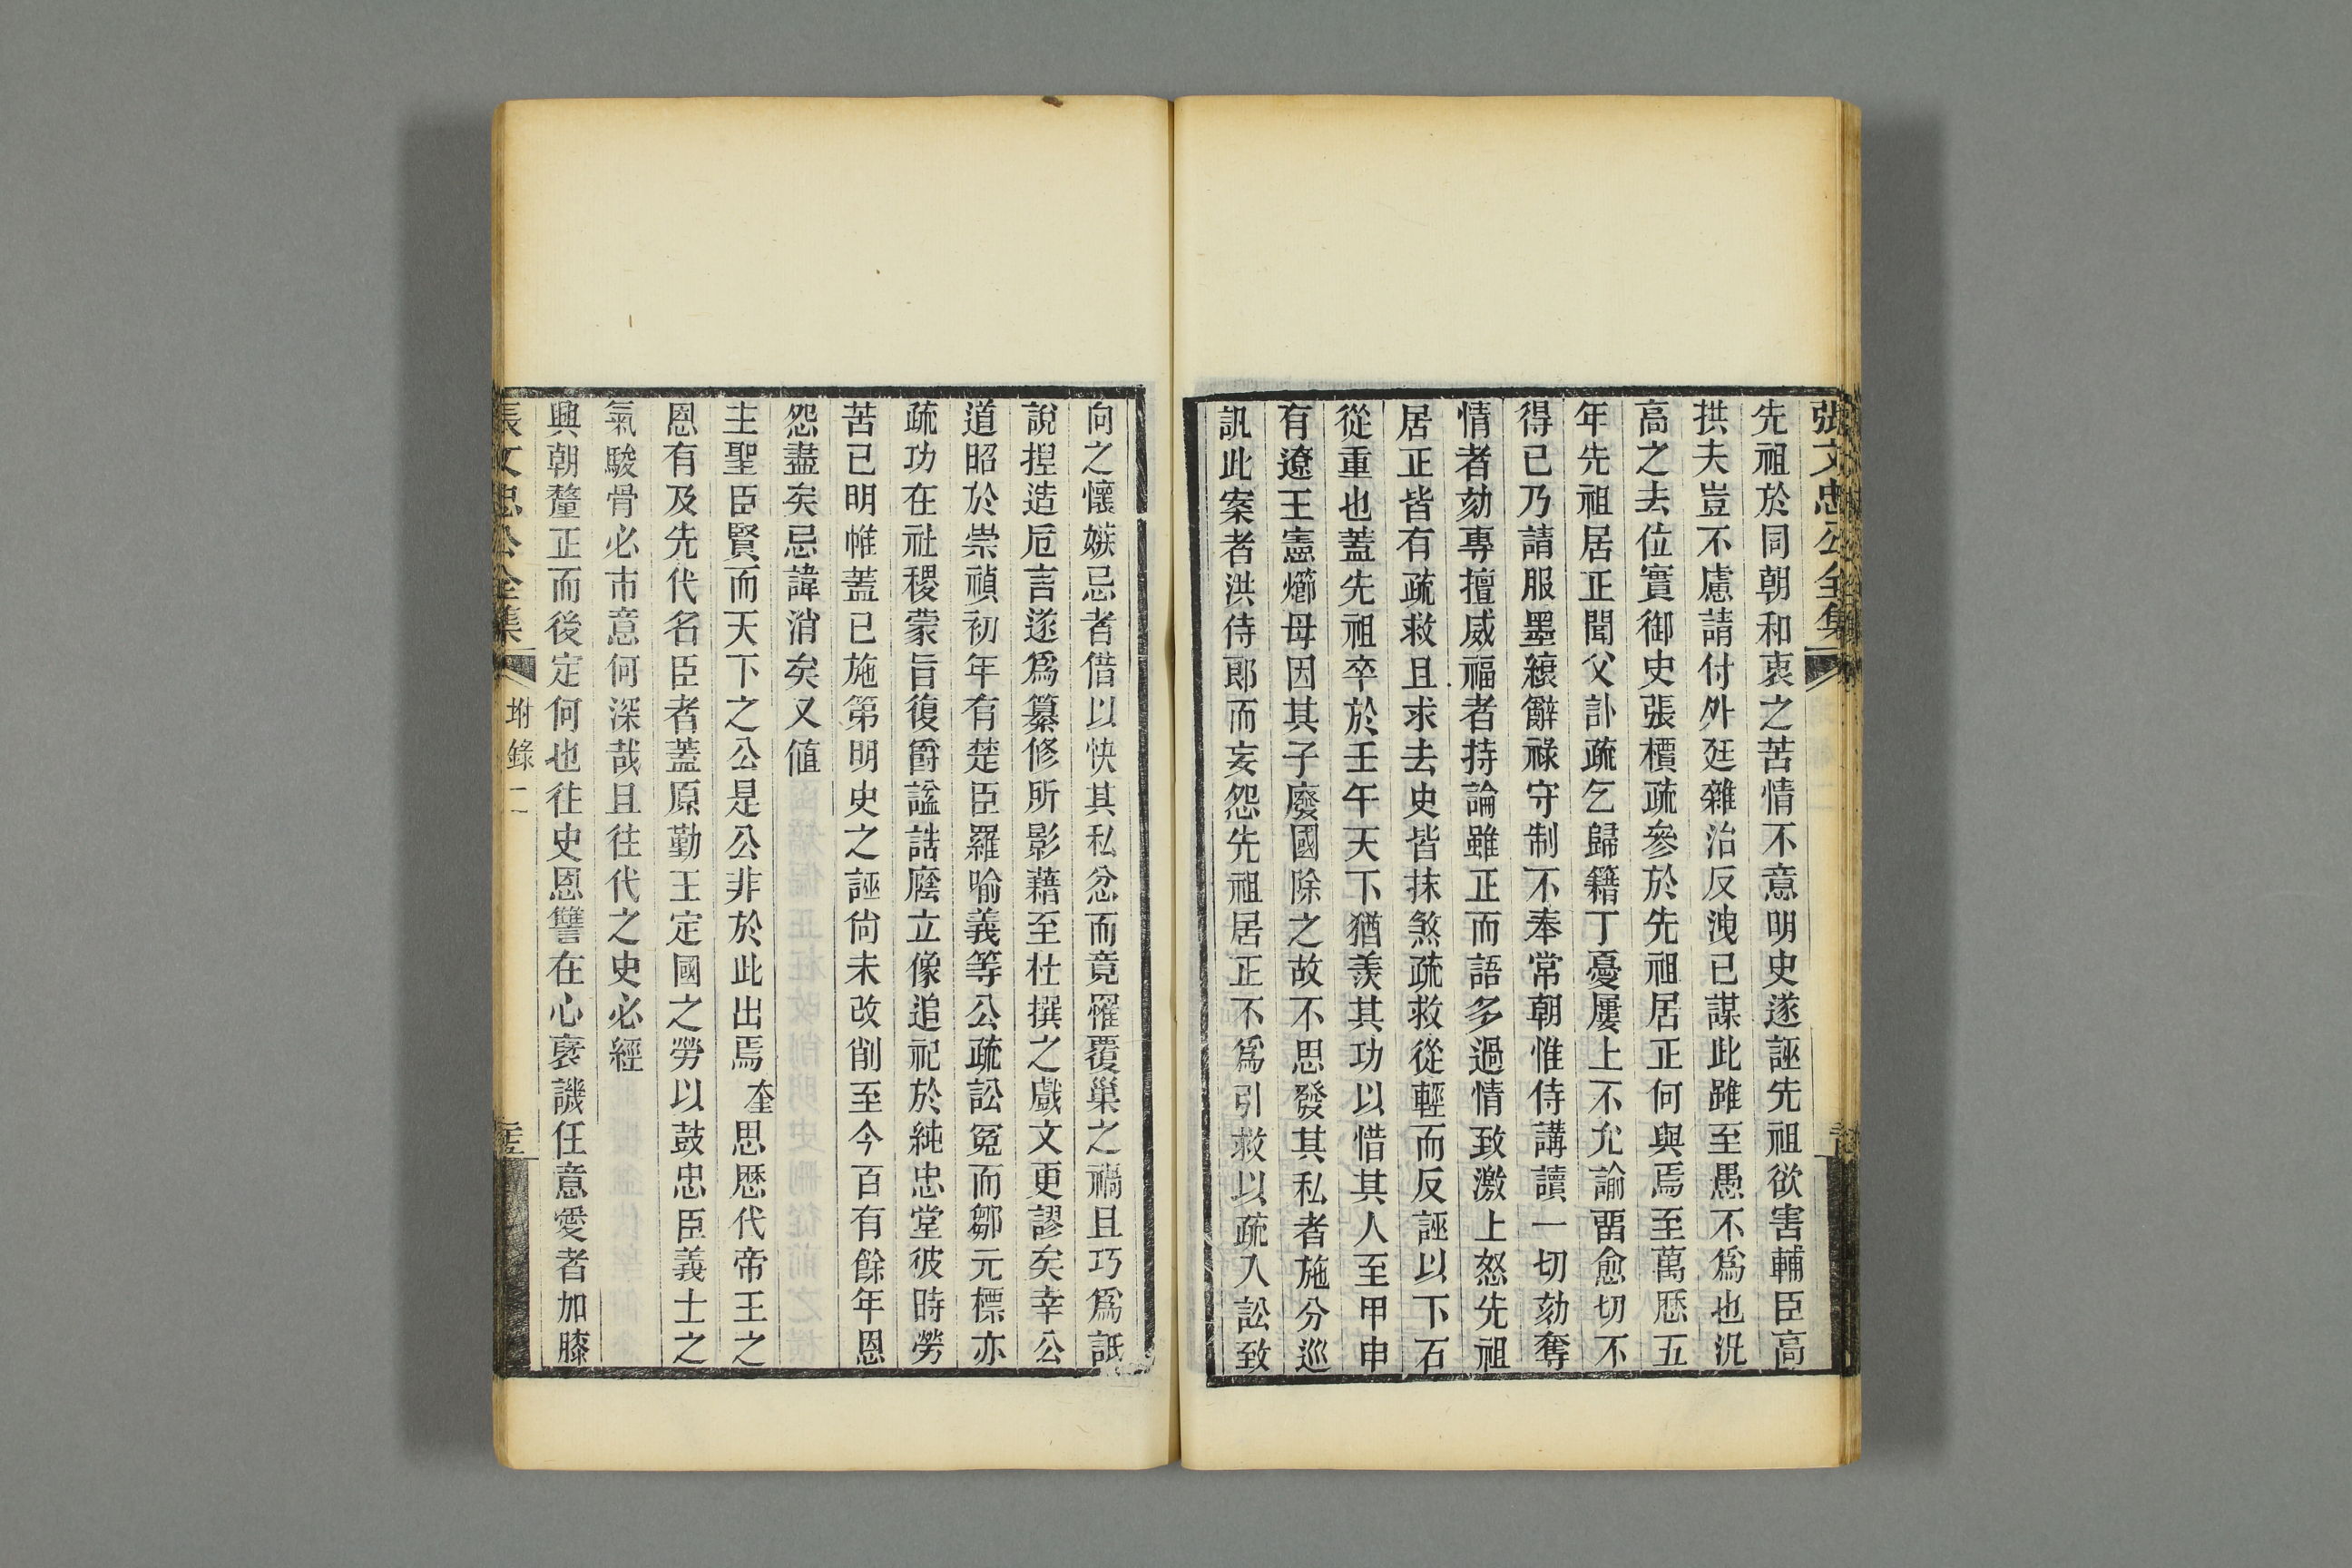 張文忠公全集
先祖於同朝和衷之苦情不意明史遂誣先祖欲害輔臣高
拱夫豈不慮請付外廷雜治反洩已謀此雖至愚不爲也况
高之去位實御史張檟疏參於先祖居正何與焉至萬歷五
年先祖居正聞父訃疏乞歸籍丁憂屢上不允諭畱愈切不
得已乃請服墨縗辭祿守制不奉常朝惟侍講讀一切劾奪
情者劾專擅威福者持論雖正而語多過情致激上怒先祖
居正皆有疏救且求去史皆抹煞疏救從輕而反誣以下石
從重也蓋先祖卒於壬午天下猶羨其功以惜其人至甲申
有遼王憲㸅母因其子廢國除之故不思發其私者施分巡
訊此案者洪侍郎而妄怨先祖居正不爲引救以疏入訟致
向之懷嫉忌者借以快其私忿而竟罹覆巢之禍且巧爲詆
說捏造卮言遂爲纂修所影藉至杜撰之戲文更謬矣幸公
道昭於崇禎初年有楚臣羅喻義等公疏訟冤而鄒元標亦
疏功在社稷蒙旨復爵諡誥廕立像追祀於純忠堂彼時勞
苦已明帷蓋已施第明史之誣尙未改削至今百有餘年恩
怨盡矣忌諱消矣又值
主聖臣賢而天下之公是公非於此出焉奎思歷代帝王之
恩有及先代名臣者蓋原勤王定國之勞以鼓忠臣義士之
氣駿骨必市意何深哉且往代之史必經
興朝釐正而後定何也往史恩讐在心褒譏任意愛者加膝
張文忠公全集
坿錄二